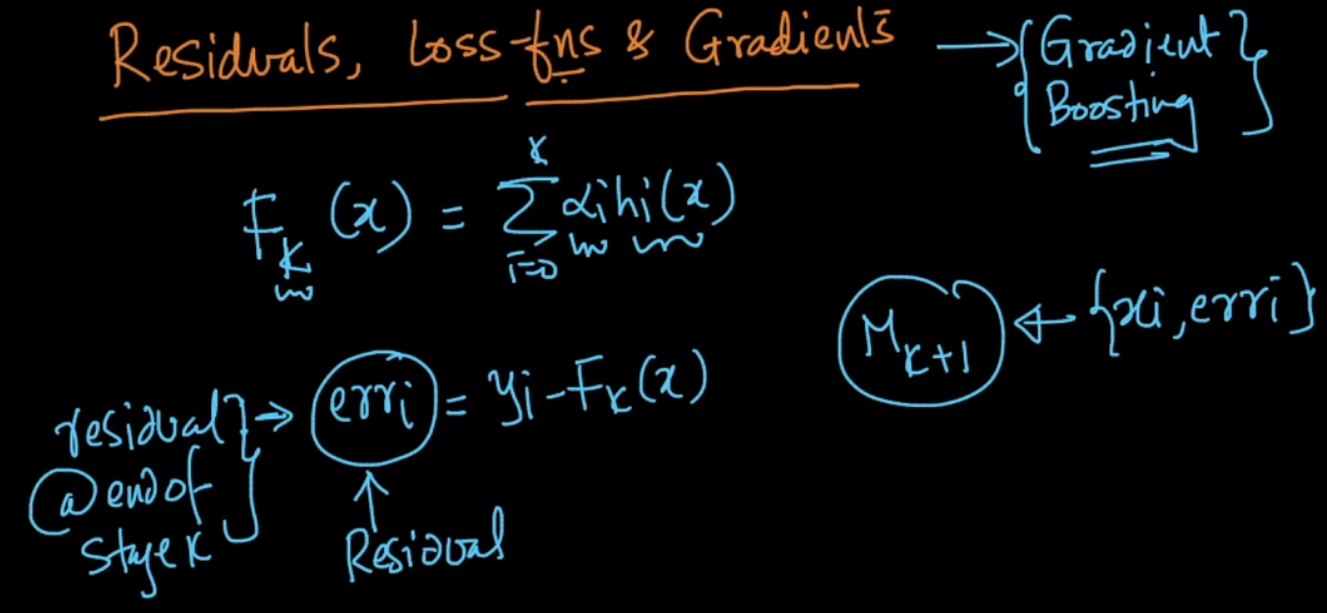 Residuals, Loss-fns & Gradients → {Gradient Boosting}
F_k(x) = Σ_{i=0}^{K} αi hi(x)
M_{K+1} ← {xi, erri}
residual @ end of stage K} → erri = yi - F_k(x)
↑
Residual